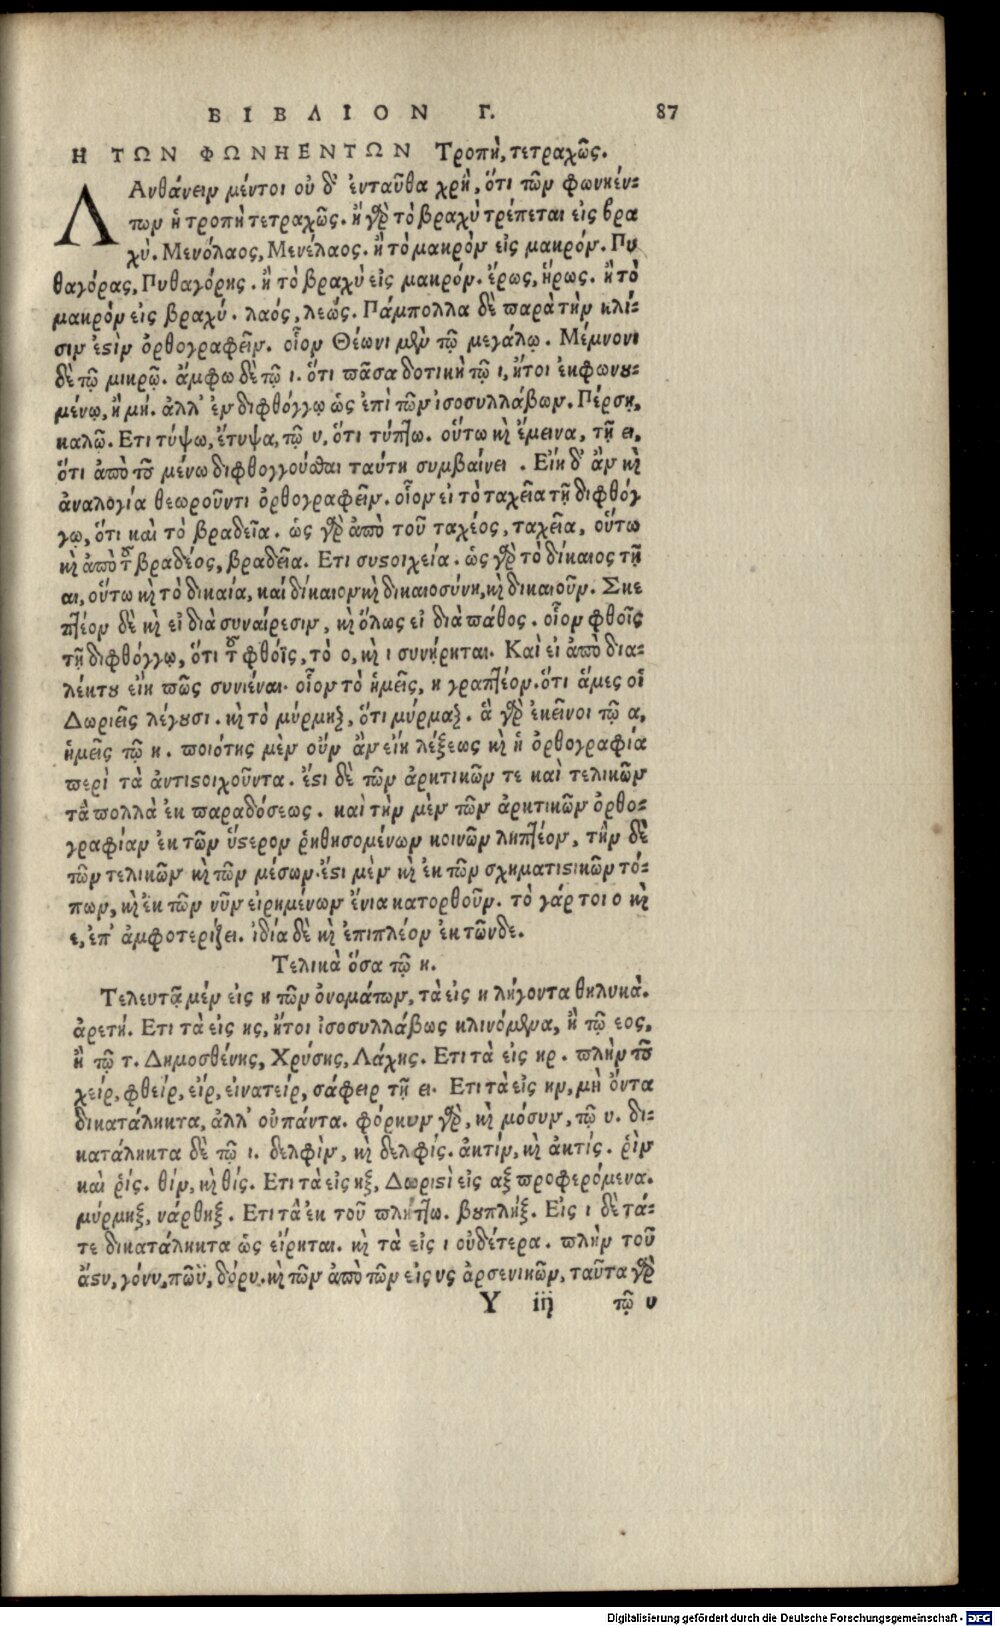 ΒΙΒΛΙΟΝ Γ. 87
Η ΤΩΝ ΦΩΝΗΕΝΤΩΝ Τροπὴ, τετραχῶς.
Λανθάνειν μέντοι οὐ δ' ἐνταῦθα χρὴ, ὅτι τῶν φωνηέν-
των ἡ τροπὴ τετραχῶς. ἢ γὰρ τὸ βραχὺ τρέπεται εἰς βρα
χύ. Μενόλαος, Μενέλαος. ἢ τὸ μακρὸν εἰς μακρόν. Πυ
θαγόρας, Πυθαγόρης. ἢ τὸ βραχὺ εἰς μακρόν. ἔρως, ἥρως. ἢ τὸ
μακρὸν εἰς βραχύ. λαός, λεώς. Πάμπολλα δὲ παρὰ τὴν κλί-
σιν ἐστὶν ὀρθογραφεῖν. οἷον Θέωνι μὲν τῷ μεγάλῳ. Μέμνονι
δὲ τῷ μικρῷ. ἄμφω δὲ τῷ ι. ὅτι πᾶσα δοτικὴ τῷ ι, ἤτοι ἐκφωνου-
μένῳ, ἢ μή. ἀλλ' ἐν διφθόγγῳ ὡς ἐπὶ τῶν ἰσοσυλλάβων. Πέρσῃ,
καλῷ. Ετι τύψω, ἔτυψα, τῷ υ, ὅτι τύπτω. οὕτω καὶ ἔμεινα, τῇ ει,
ὅτι ἀπὸ τοῦ μένω διφθογγοῦσθαι ταύτη συμβαίνει. Εἴη δ' ἂν καὶ
ἀναλογία θεωροῦντι ὀρθογραφεῖν. οἷον εἰ τὸ ταχεῖα τῇ διφθόγ
γῳ, ὅτι καὶ τὸ βραδεῖα. ὡς γὰρ ἀπὸ τοῦ ταχέος, ταχεῖα, οὕτω
καὶ ἀπὸ τοῦ βραδέος, βραδεῖα. Ετι συστοιχεία. ὡς γὰρ τὸ δίκαιος τῇ
αι, οὕτω καὶ τὸ δικαία, καὶ δίκαιον καὶ δικαιοσύνη, καὶ δικαιοῦν. Σκε
πτέον δὲ καὶ εἰ διὰ συναίρεσιν, καὶ ὅλως εἰ διὰ πάθος. οἷον φθοῖς
τῇ διφθόγγῳ, ὅτι τοῦ φθόϊς, τὸ ο, καὶ ι συνῄρηται. Καὶ εἰ ἀπὸ δια-
λέκτου εἴη πῶς συνιέναι. οἷον τὸ ἡμεῖς, η γραπτέον. ὅτι ἅμες οἱ
Δωριεῖς λέγουσι. καὶ τὸ μύρμηξ, ὅτι μύρμαξ. ἃ γὰρ ἐκεῖνοι τῷ α,
ἡμεῖς τῷ η. ποιότης μὲν οὖν ἂν εἴη λέξεως καὶ ἡ ὀρθογραφία
περὶ τὰ ἀντιστοιχοῦντα. ἔστι δὲ τῶν ἀρκτικῶν τε καὶ τελικῶν
τὰ πολλὰ ἐκ παραδόσεως. καὶ τὴν μὲν τῶν ἀρκτικῶν ὀρθο-
γραφίαν ἐκ τῶν ὕστερον ῥηθησομένων κοινῶν ληπτέον, τὴν δὲ
τῶν τελικῶν καὶ τῶν μέσων. ἔστι μὲν καὶ ἐκ τῶν σχηματιστικῶν τό-
πων, καὶ ἐκ τῶν νῦν εἰρημένων ἔνια κατορθοῦν. τὸ γάρ τοι ο καὶ
ε, ἐπ' ἀμφοτερίζει. ἰδία δὲ καὶ ἐπιπλέον ἐκ τῶνδε.
Τελικὰ ὅσα τῷ η.
Τελευτᾷ μέν εἰς η τῶν ὀνομάτων, τὰ εἰς η λήγοντα θηλυκὰ.
ἀρετή. Ετι τὰ εἰς ης, ἤτοι ἰσοσυλλάβως κλινόμενα, ἢ τῷ εος,
ἢ τῷ τ. Δημοσθένης, Χρύσης, Λάχης. Ετι τὰ εἰς ηρ. πλὴν τοῦ
χείρ, φθείρ, εἴρ, εἰνατείρ, σάφειρ τῇ ει. Ετι τὰ εἰς ην, μὴ ὄντα
δικατάληκτα, ἀλλ' οὐ πάντα. φόρκυν γὰρ, καὶ μόσυν, τῷ υ. δι-
κατάληκτα δὲ τῷ ι. δελφὶν, καὶ δελφίς. ἀκτίν, καὶ ἀκτίς. ῥὶν
καὶ ῥίς. θίν, καὶ θίς. Ετι τὰ εἰς ηξ, Δωριστὶ εἰς αξ προφερόμενα.
μύρμηξ, νάρθηξ. Ετι τὰ ἐκ τοῦ πλήττω. βουπλήξ. Εἰς ι δὲ τά-
τε δικατάληκτα ὡς εἴρηται. καὶ τὰ εἰς ι οὐδέτερα. πλὴν τοῦ
ἄστυ, γόνυ, πῶϋ, δόρυ. καὶ τῶν ἀπὸ τῶν εἰς υς ἀρσενικῶν, ταῦτα γὰρ
Υ iij τῷ υ
Digitalisierung gefördert durch die Deutsche Forschungsgemeinschaft - DFG